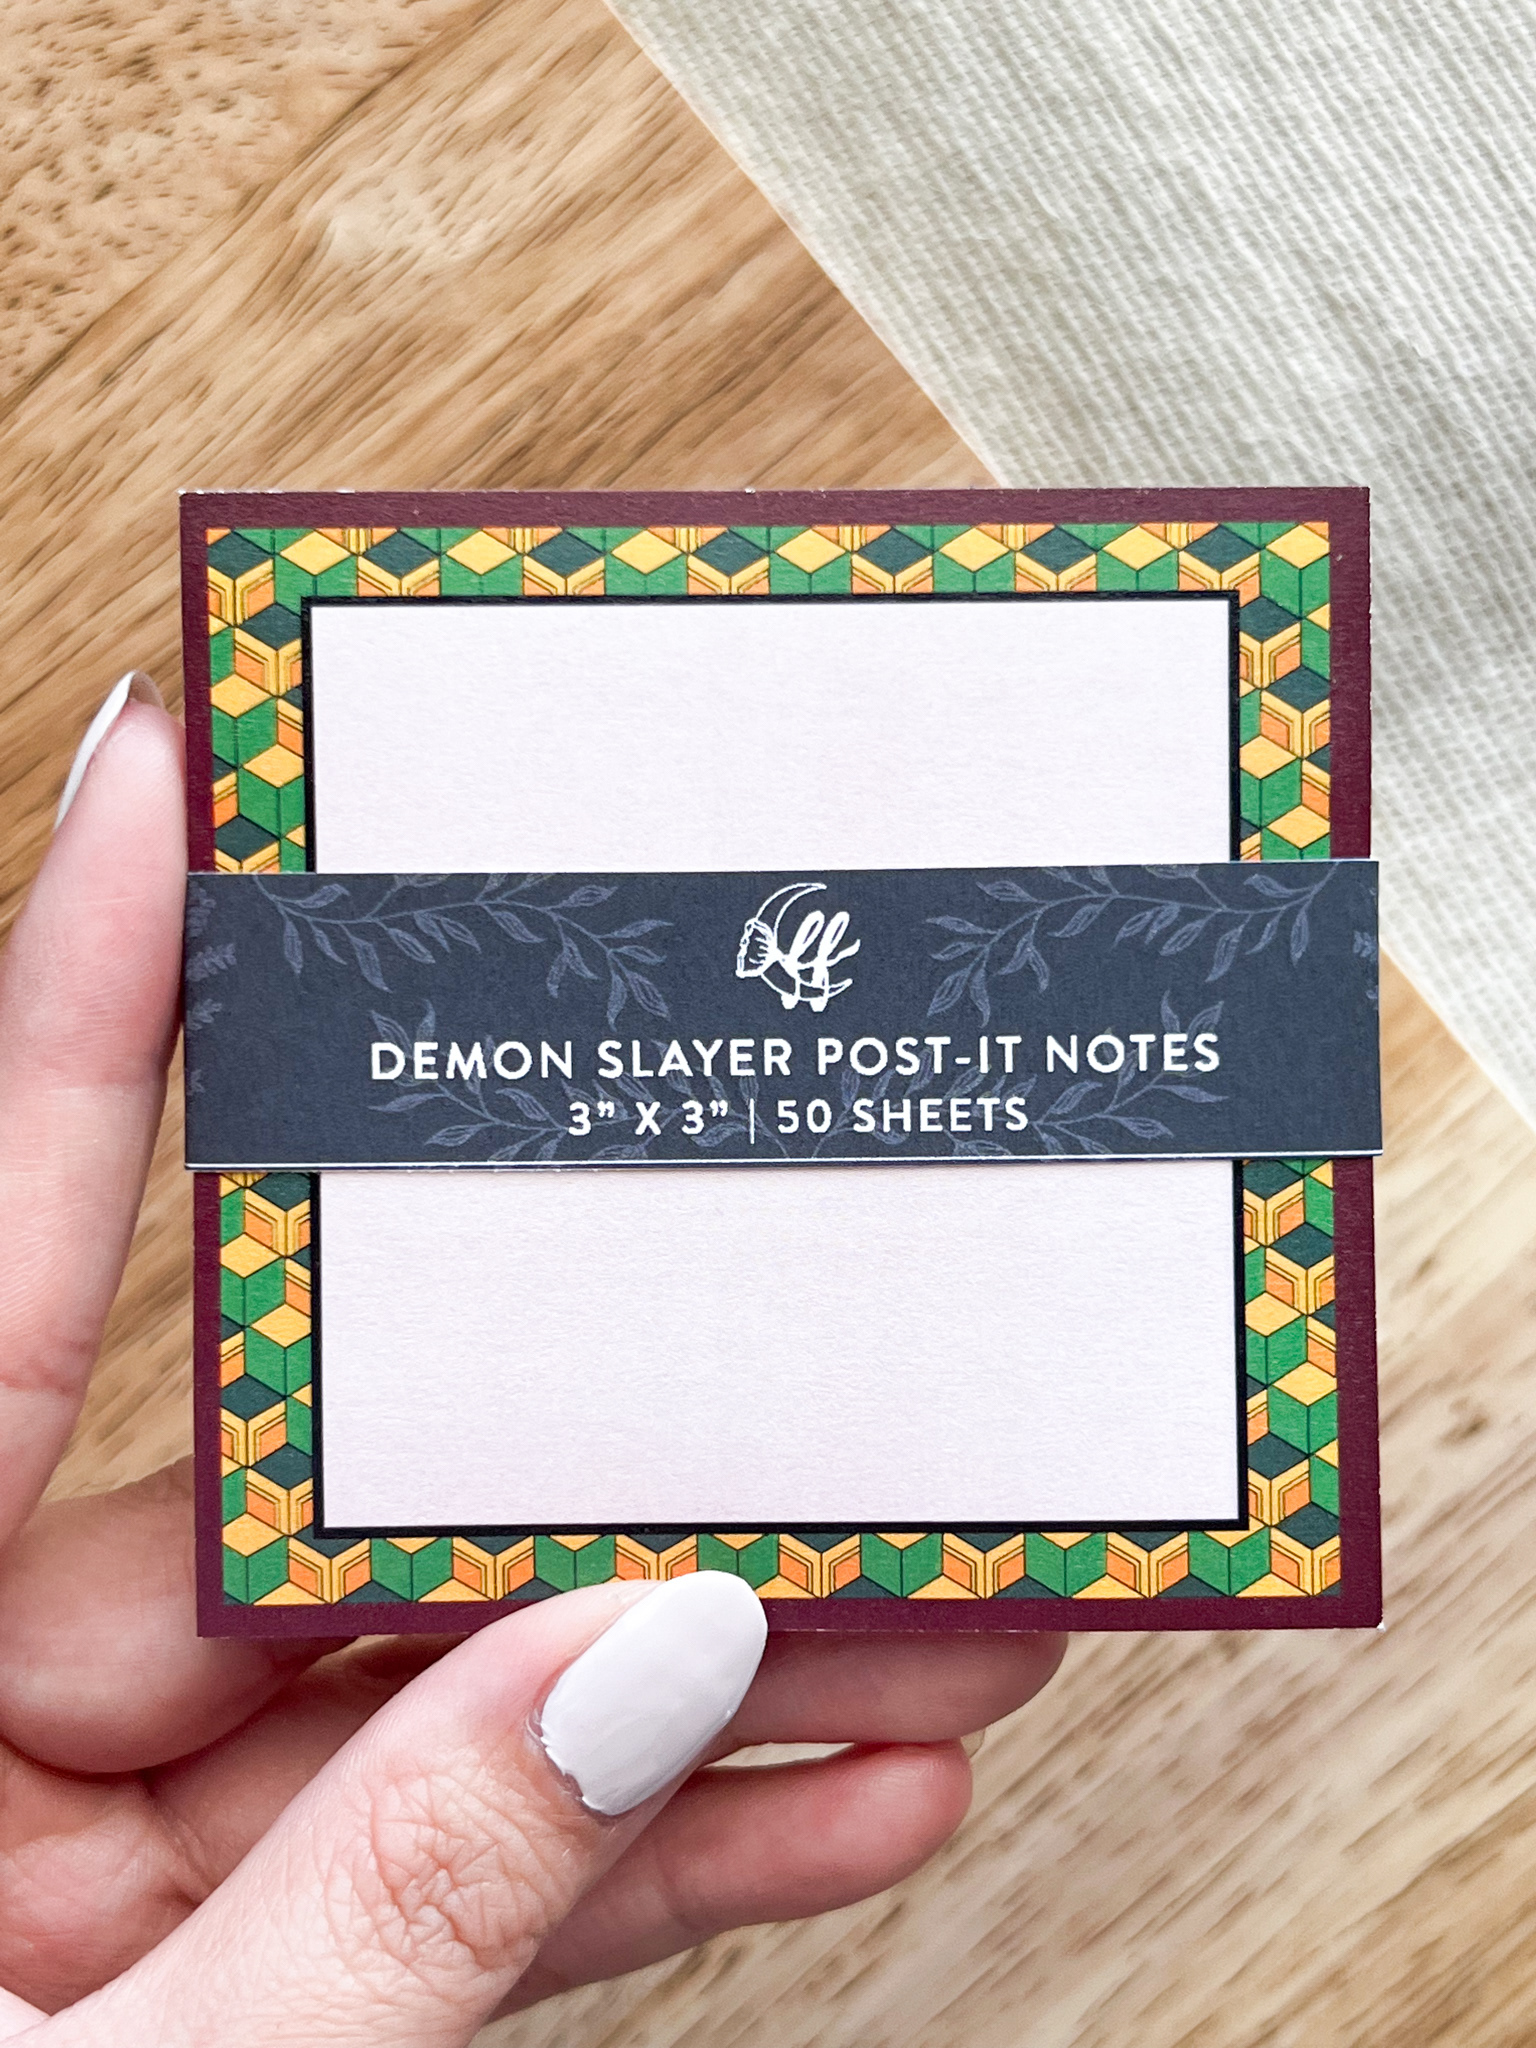 ff
DEMON SLAYER POST-IT NOTES
3” X 3” | 50 SHEETS